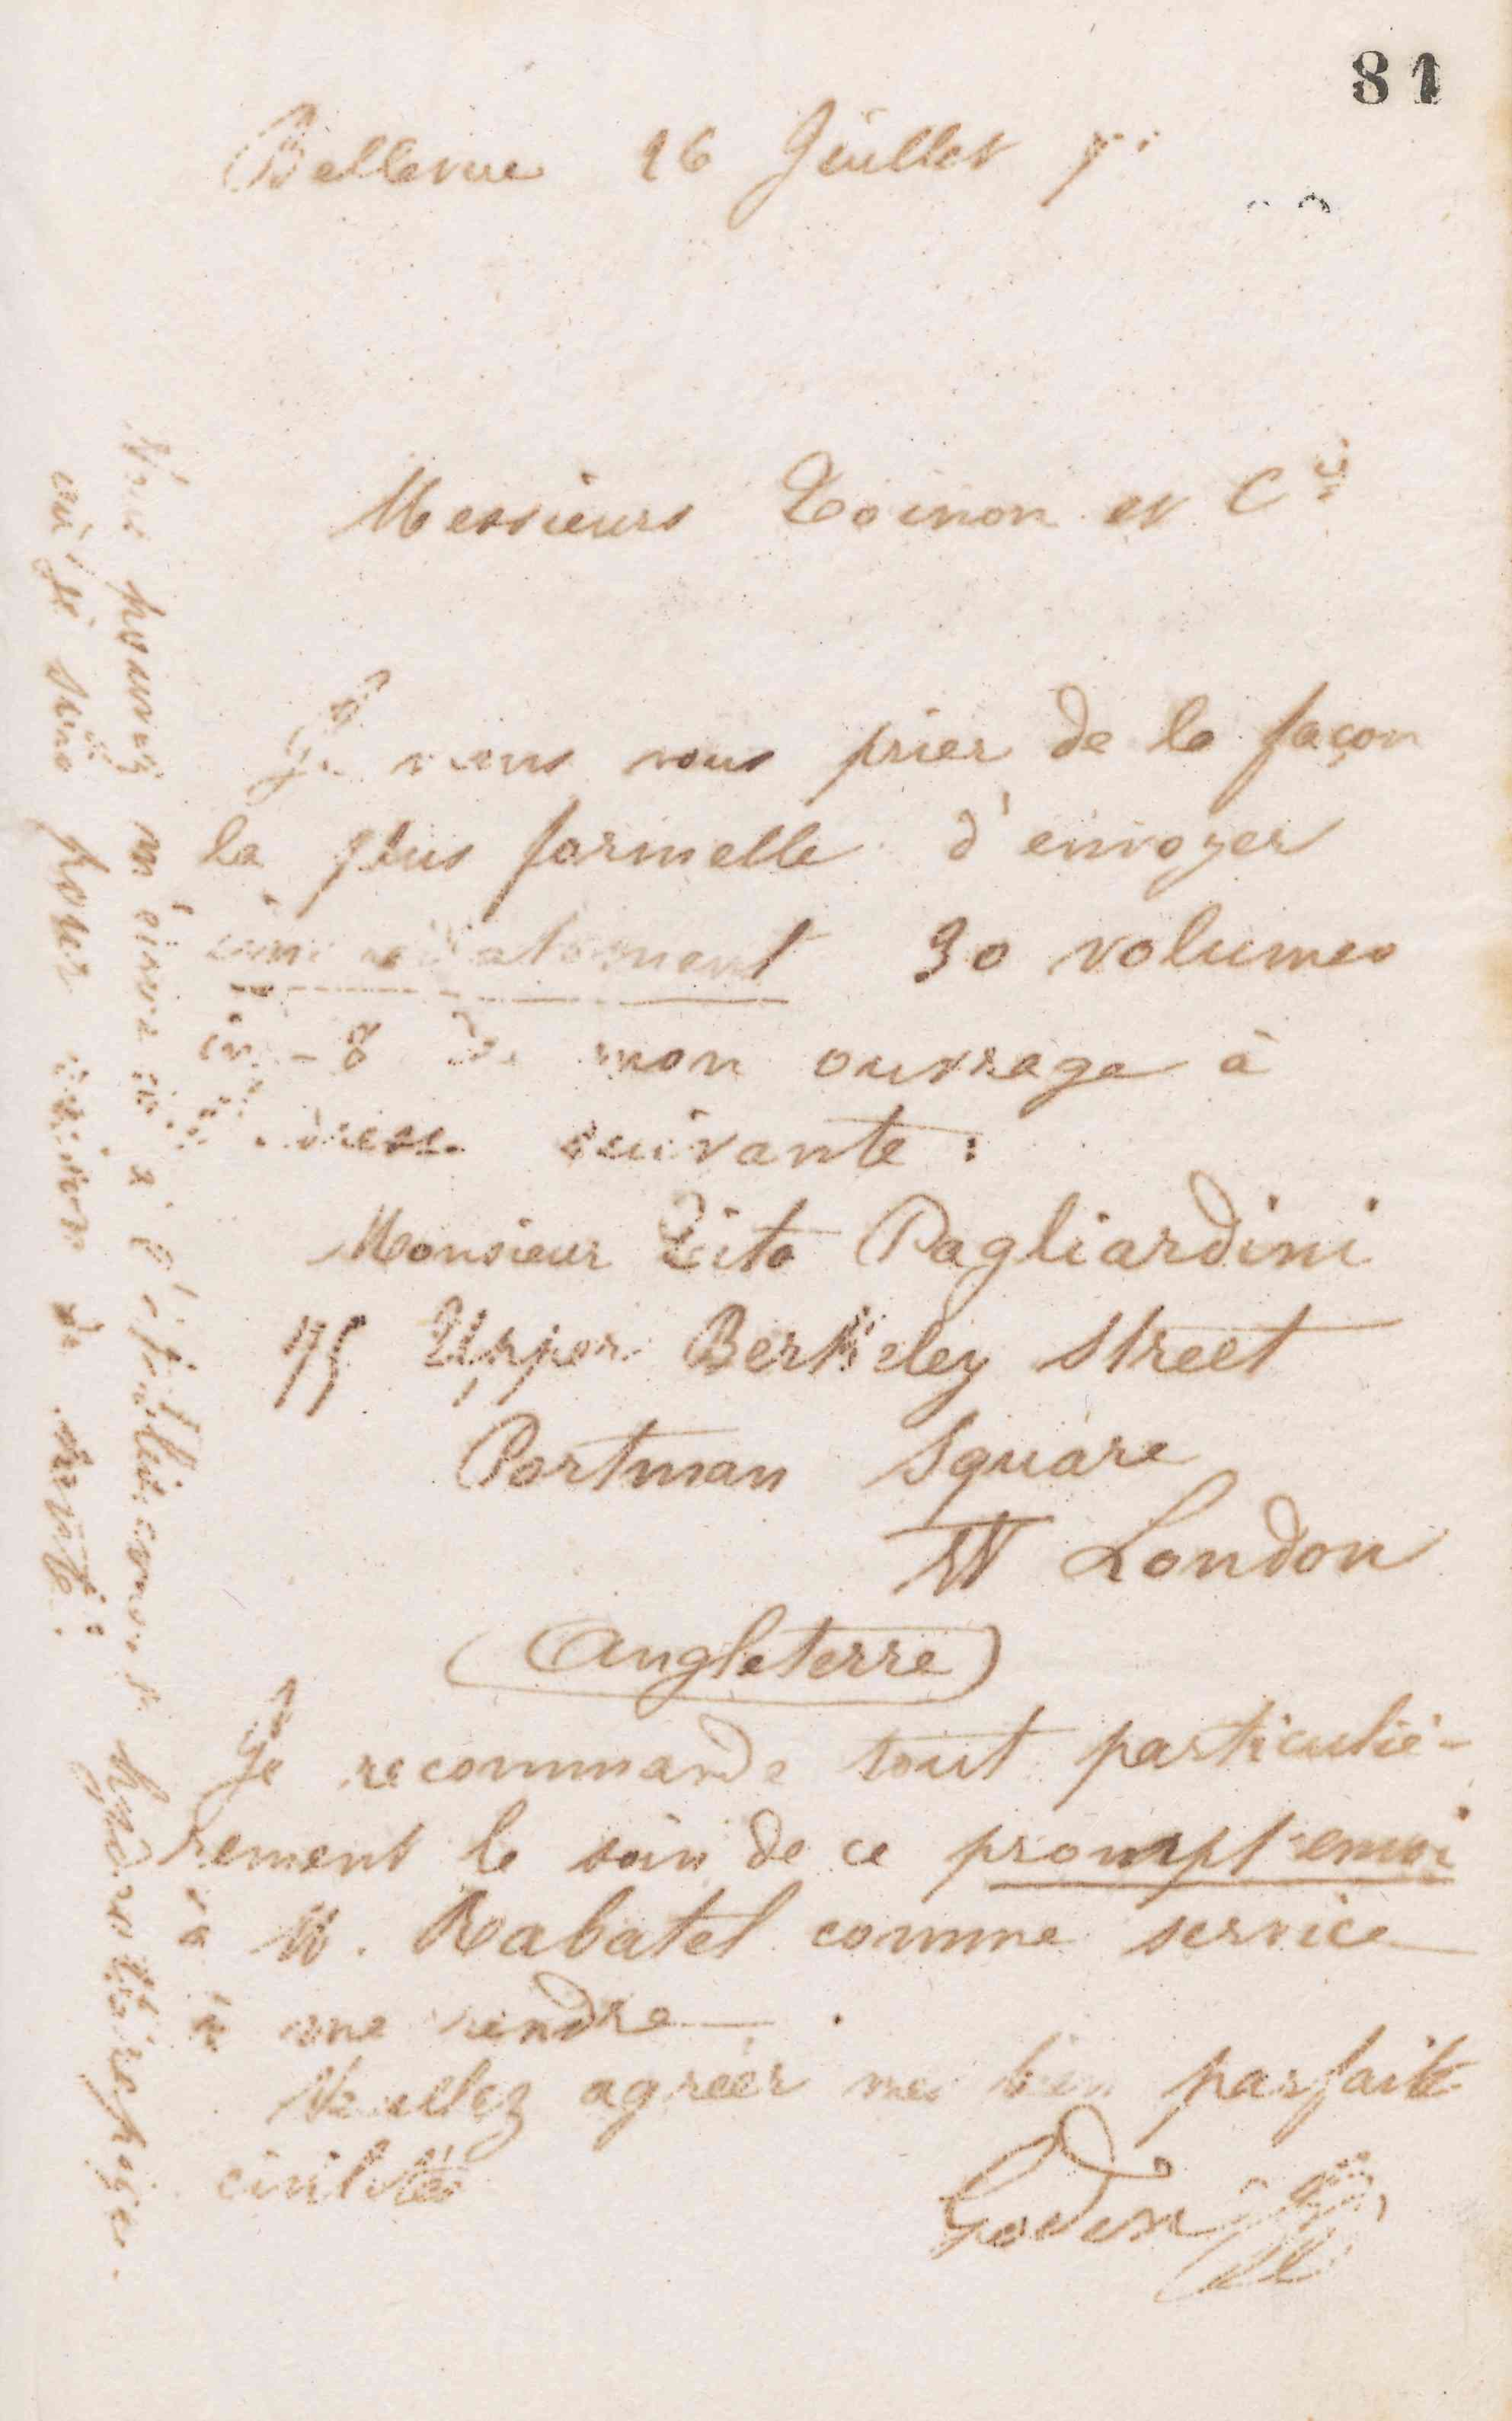 81
Bellevue 16 Juillet 7
Messieurs Toinon et Cie
Je viens vous prier de la façon
la plus formelle d'envoyer
immédiatement 30 volumes
in-8 de mon ouvrage à
suivante :
Monsieur Tito Pagliardini
75 Upper Berkeley Street
Portman Square
W London
(Angleterre)
Je recommande tout particuliè-
rement le soin de ce prompt envoi
à M. Rabatel comme service
à me rendre.
Veuillez agréer mes bien parfaites
civilités
Godin
Vous pouvez m'écrire ici à l'établissement hydrothérapique
où je suis pour raison de santé.